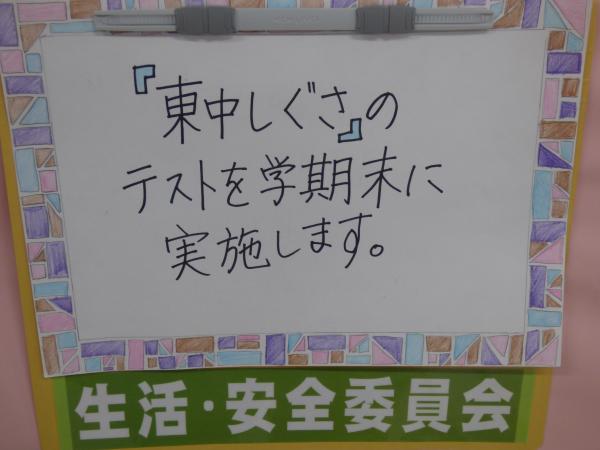 『東中しぐさ』の
テストを学期末に
実施します。
生活・安全委員会